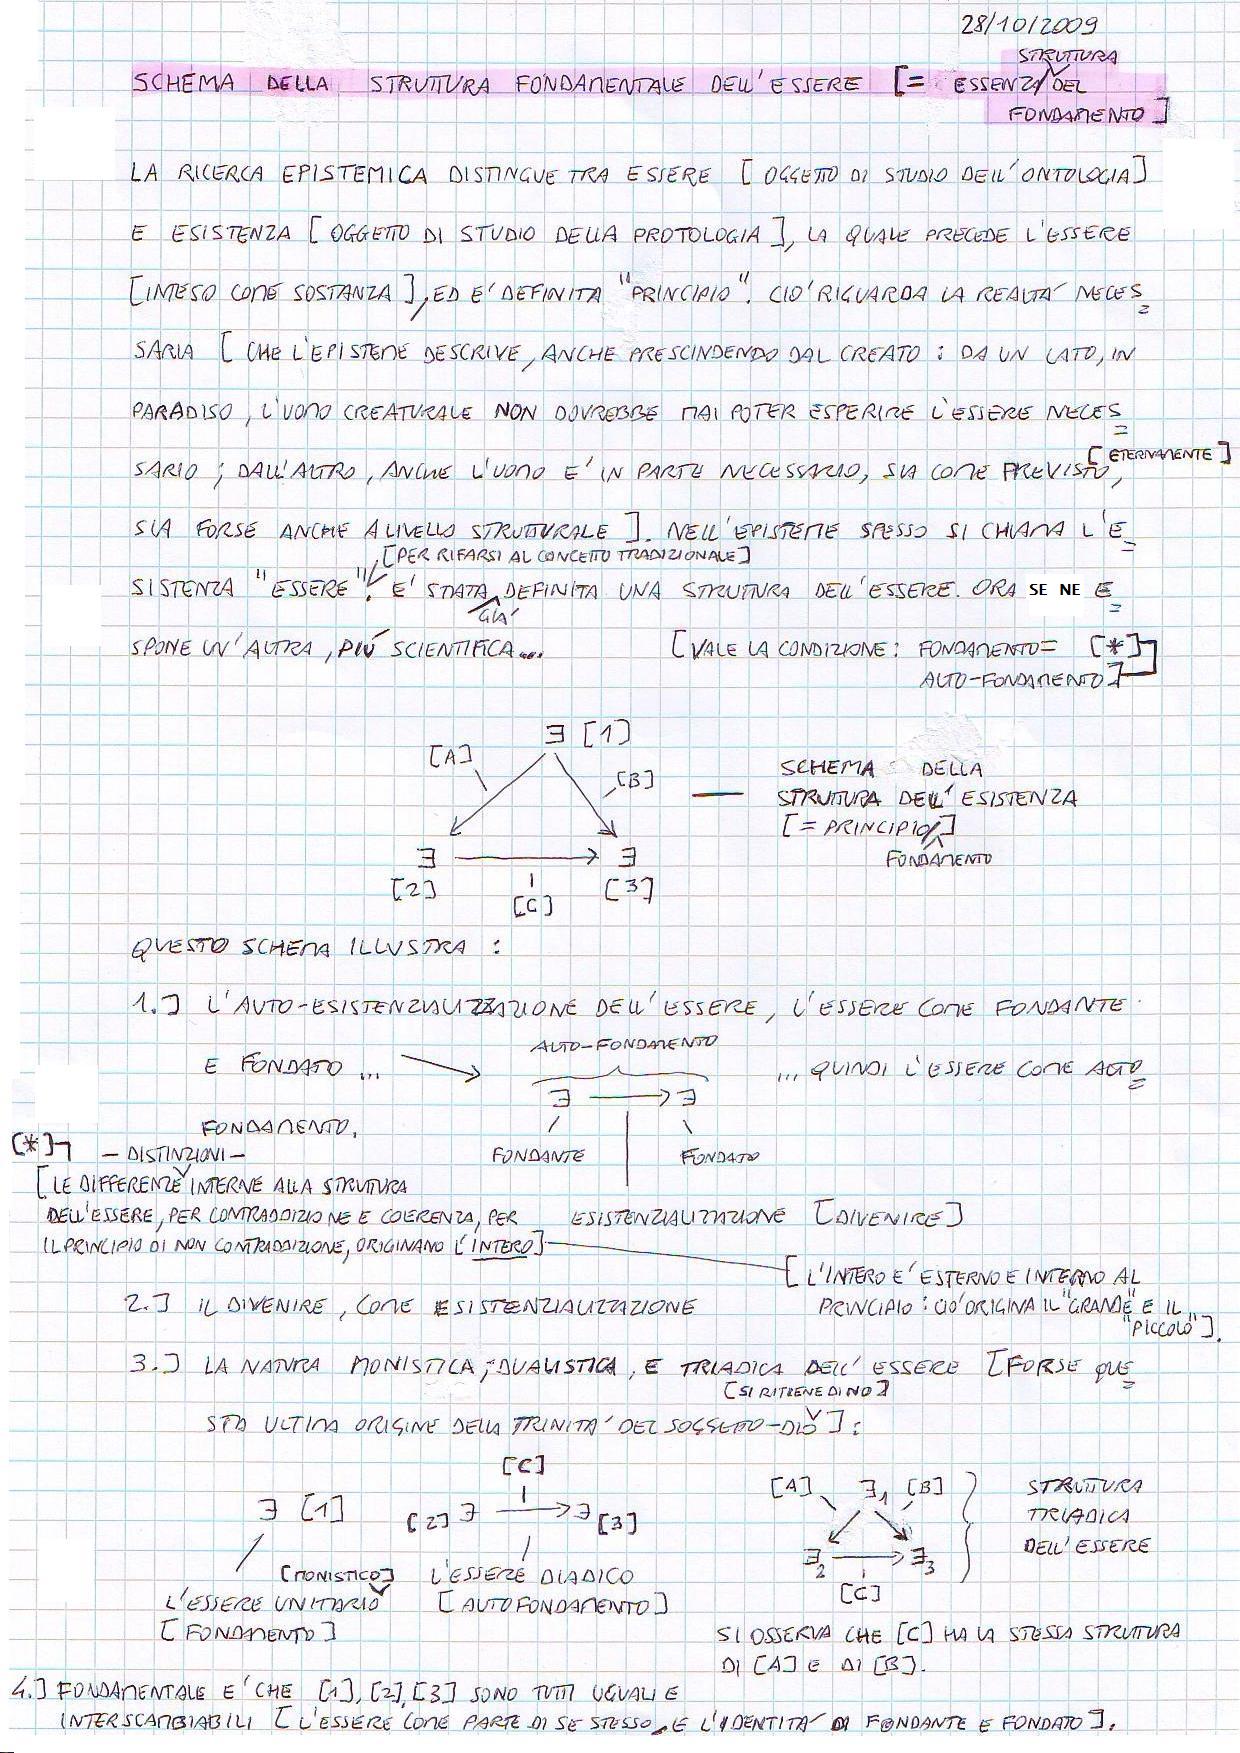 28/10/2009
STRUTTURA
SCHEMA DELLA STRUTTURA FONDAMENTALE DELL'ESSERE [= ESSENZA DEL
FONDAMENTO]
LA RICERCA EPISTEMICA DISTINGUE TRA ESSERE [OGGETTO DI STUDIO DELL'ONTOLOGIA]
E ESISTENZA [OGGETTO DI STUDIO DELLA PROTOLOGIA], LA QUALE PRECEDE L'ESSERE
[INTESO COME SOSTANZA], ED E' DEFINITA "PRINCIPIO". CIO' RIGUARDA LA REALTA' NECES=
SARIA [CHE L'EPISTEME DESCRIVE, ANCHE PRESCINDENDO DAL CREATO: DA UN LATO, IN
PARADISO, L'UOMO CREATURALE NON DOVREBBE MAI POTER ESPERIRE L'ESSERE NECES=
[ETERNAMENTE]
SARIO; DALL'ALTRO, ANCHE L'UOMO E' IN PARTE NECESSARIO, SIA COME PREVISTO,
SIA FORSE ANCHE A LIVELLO STRUTTURALE]. NELL'EPISTEME SPESSO SI CHIAMA L'E=
[PER RIFARSI AL CONCETTO TRADIZIONALE]
SISTENZA "ESSERE". E' STATA DEFINITA UNA STRUTTURA DELL'ESSERE. ORA SE NE E=
GIA'
SPONE UN'ALTRA, PIÚ SCIENTIFICA... [VALE LA CONDIZIONE: FONDAMENTO= [*]
AUTO-FONDAMENTO]
∃ [1]
[A]
[B]
SCHEMA DELLA
STRUTTURA DELL'ESISTENZA
[= PRINCIPIO/]
FONDAMENTO
∃ ∃
[2] [3]
[C]
QUESTO SCHEMA ILLUSTRA:
1.] L'AUTO-ESISTENZIALIZZAZIONE DELL'ESSERE, L'ESSERE COME FONDANTE
AUTO-FONDAMENTO
E FONDATO ... ... QUINDI L'ESSERE COME AUTO=
∃ ∃
FONDAMENTO.
FONDANTE FONDATO
[*] - DISTINZIONI -
[LE DIFFERENZE INTERNE ALLA STRUTTURA
DELL'ESSERE, PER CONTRADDIZIONE E COERENZA, PER
IL PRINCIPIO DI NON CONTRADDIZIONE, ORIGINANO L'INTERO]
ESISTENZIALIZZAZIONE [DIVENIRE]
[L'INTERO E' ESTERNO E INTERNO AL
PRINCIPIO: CIO' ORIGINA IL "GRANDE" E IL
"PICCOLO"].
2.] IL DIVENIRE, COME ESISTENZIALIZZAZIONE
3.] LA NATURA MONISTICA, DUALISTICA, E TRIADICA DELL'ESSERE [FORSE QUE=
[SI RITIENE DI NO]
STA ULTIMA ORIGINE DELLA TRINITA' DEL SOGGETTO-DIO]:
∃ [1]
[C]
[2] ∃ ∃ [3]
[A] ∃1 [B]
∃2 ∃3
[C]
STRUTTURA
TRIADICA
DELL'ESSERE
[MONISTICO]
L'ESSERE UNITARIO
[FONDAMENTO]
L'ESSERE DIADICO
[AUTOFONDAMENTO]
SI OSSERVA CHE [C] HA LA STESSA STRUTTURA
DI [A] E DI [B].
4.] FONDAMENTALE E' CHE [1], [2], [3] SONO TUTTI UGUALI E
INTERSCAMBIABILI [L'ESSERE COME PARTE DI SE STESSO, E L'IDENTITA' DI FONDANTE E FONDATO].